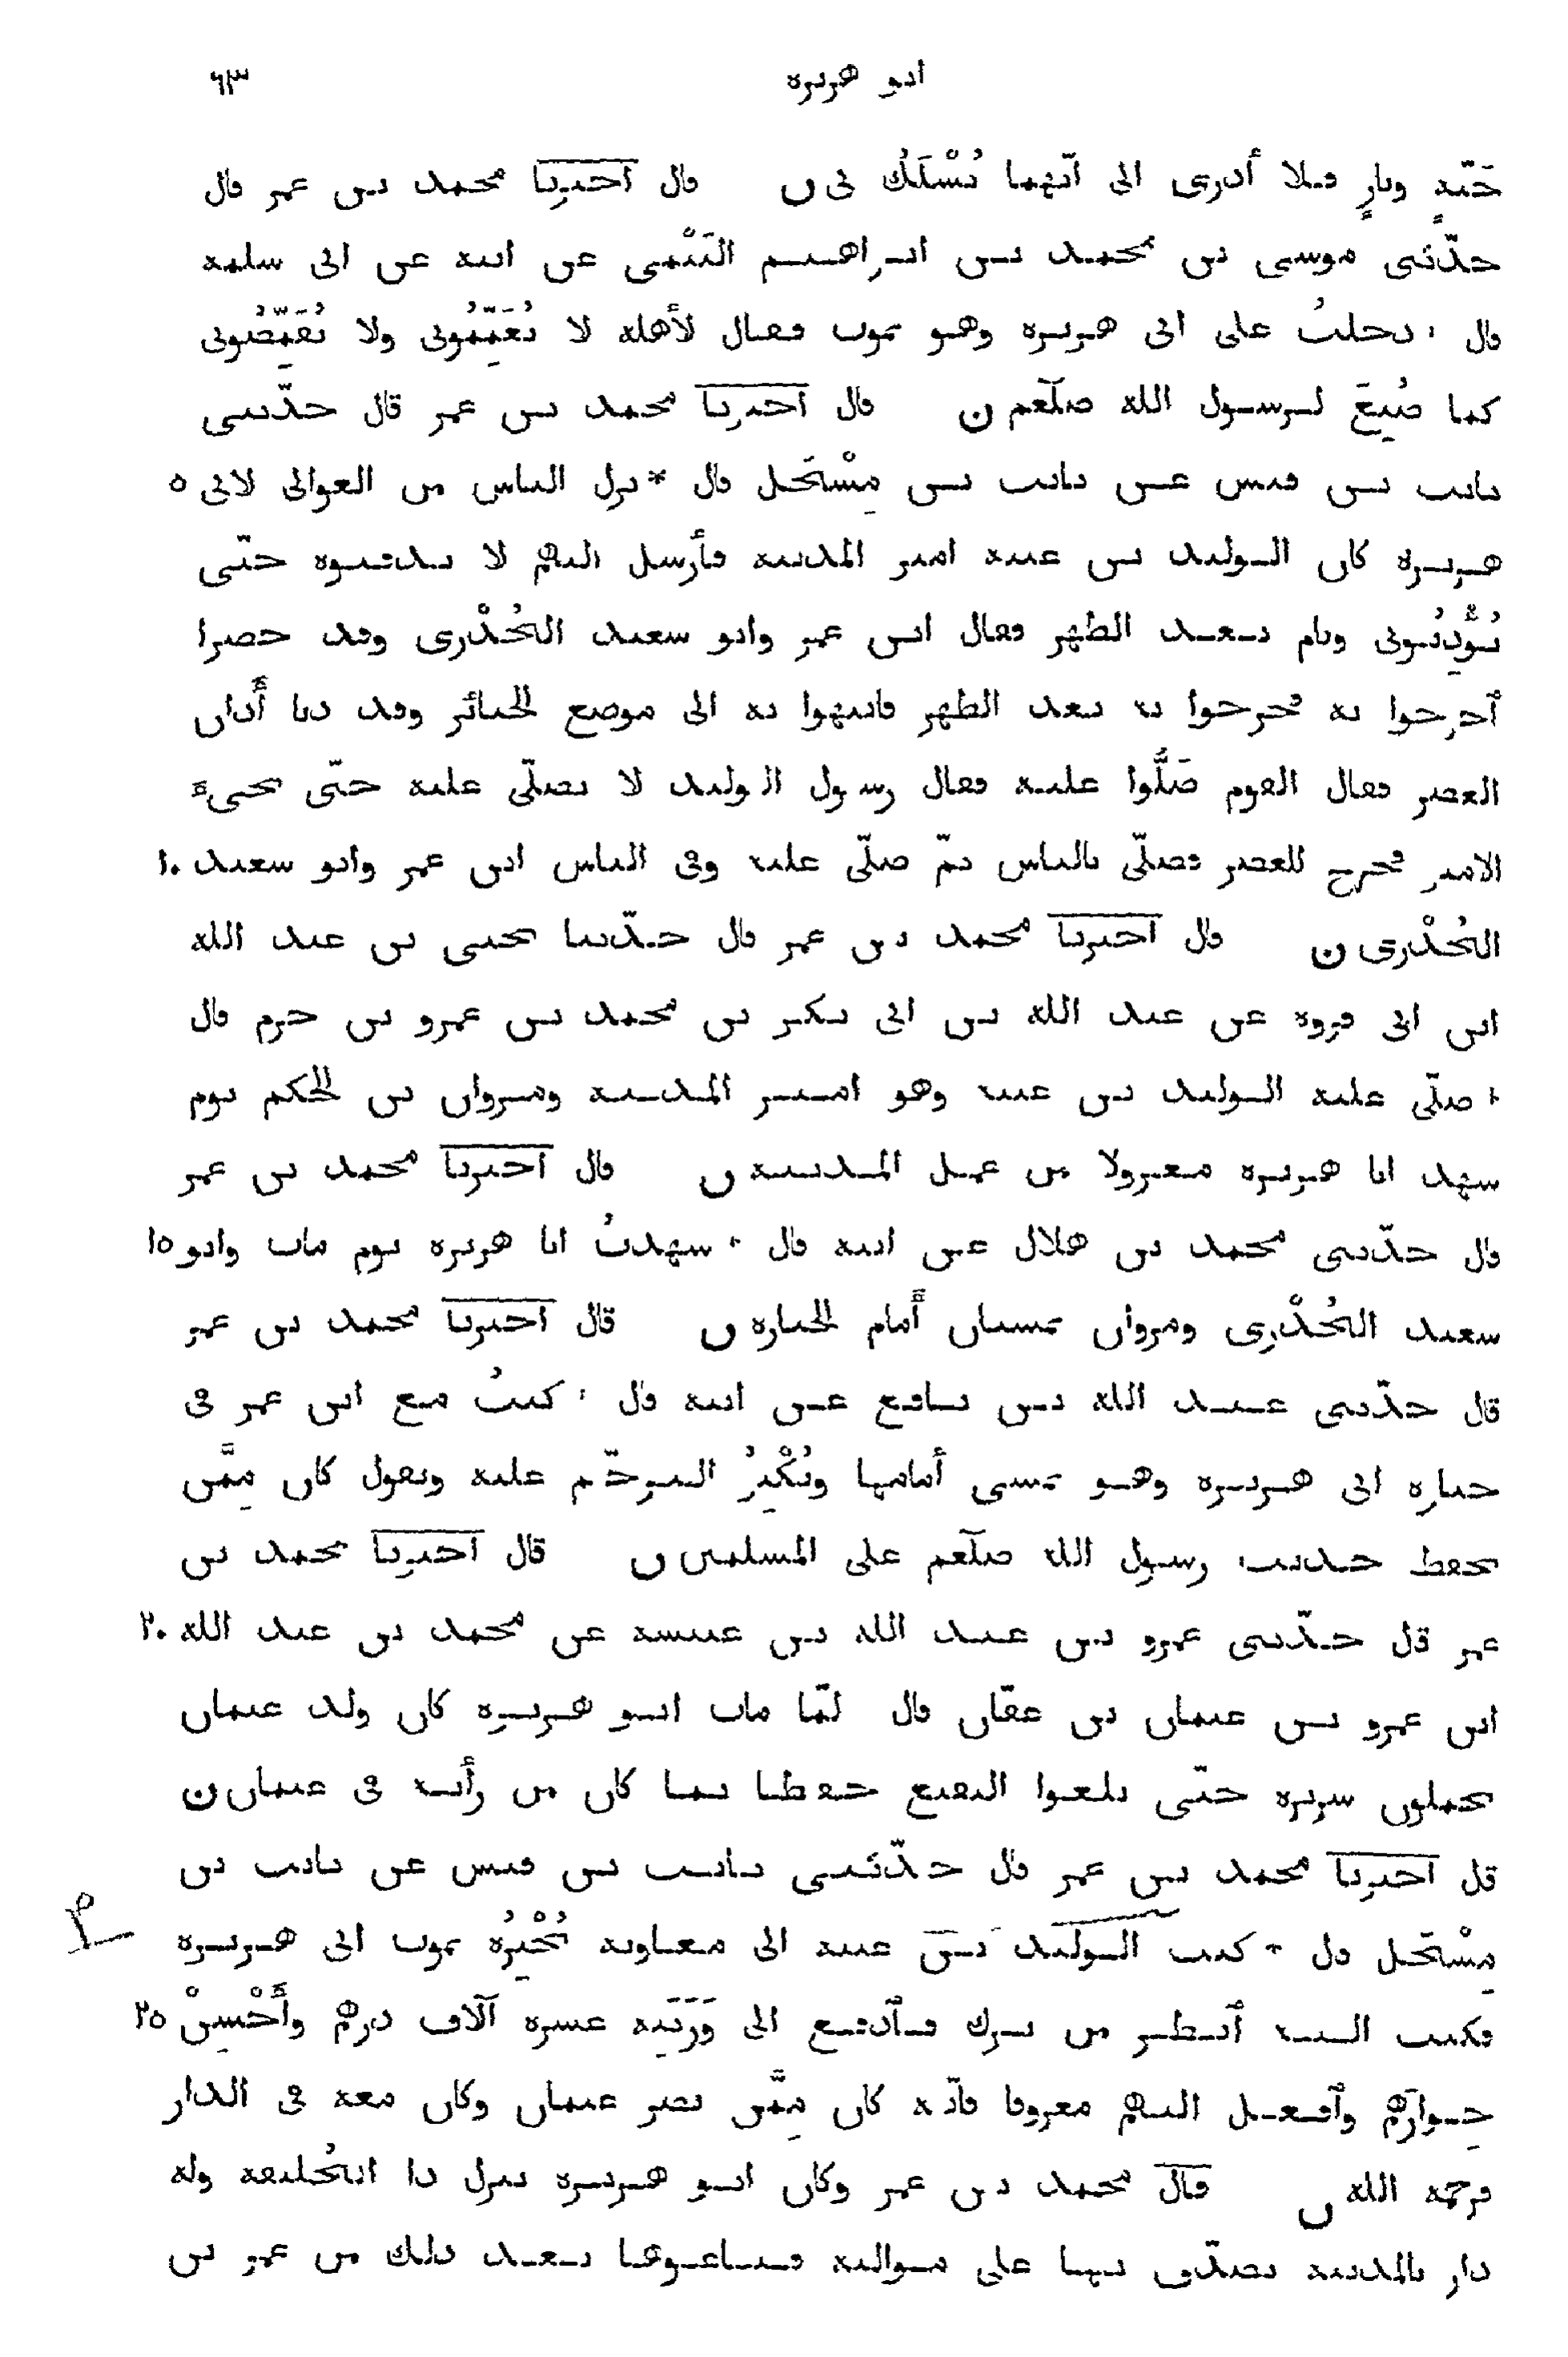 ابو هريرة ٦٣
جَنّةٍ ونارٍ فلا أدرى الى أيّهما يُسْلَكُ بى ن قال اخبرنا محمد بن عمر قال
حدّثنى موسى بن محمد بن ابراهيم التَيْمى عن ابيه عن ابى سلمة
قال ٠ دخلتُ على ابى هريرة وهو يموت فقال لأهله لا تُعَمِّمُونى ولا تُقَمِّصُونى
كما صُنِعَ لرسول الله صلّعم ن قال اخبرنا محمد بن عمر قال حدّثنى
ثابت بن قيس عن ثابت بن مِسْحَل قال * نزل الناس من العوالى لابى ٥
هريرة كان الوليد بن عتبة امير المدينة فأرسل اليهم لا تدفنوه حتّى
تُؤْذِنُونى ونام بعد الظهر فقال ابن عمر وابو سعيد الخُدْرى وقد حضرا
ٱخرجوا به فخرجوا به بعد الظهر فانتهوا به الى موضع الجنائز وقد دنا أذان
العصر فقال القوم صَلُّوا عليه فقال رسول الوليد لا يصلّى عليه حتّى يجىء
الامير فخرج للعصر فصلّى بالناس ثمّ صلّى عليه وفى الناس ابن عمر وابو سعيد ١٠
الخُدْرى ن قال اخبرنا محمد بن عمر قال حدّثنا يحيى بن عبد الله
ابن ابى فروة عن عبد الله بن ابى بكر بن محمد بن عمرو بن حزم قال
٠ صلّى عليه الوليد بن عتبة وهو امير المدينة ومروان بن الحكم يوم
شهد ابا هريرة معزولا من عمل المدينة ن قال اخبرنا محمد بن عمر
قال حدّثنى محمد بن هلال عن ابيه قال ٠ شهدتُ ابا هريرة يوم مات وابو ١٥
سعيد الخُدْرى ومروان يمشيان أمام الجنازة ن قال اخبرنا محمد بن عمر
قال حدّثنى عبد الله بن نافع عن ابيه قال ٠ كنتُ مع ابن عمر فى
جنازة ابى هريرة وهو يمشى أمامها ويُكْثِرُ الترحّم عليه ويقول كان مِمَّن
يحفظ حديث رسول الله صلّعم على المسلمين ن قال اخبرنا محمد بن
عمر قل حدّثنى عمرو بن عبد الله بن عنبسة عن محمد بن عبد الله ٢٠
ابن عمرو بن عثمان بن عفّان قال لمّا مات ابو هريرة كان ولد عثمان
يحملون سريره حتّى بلغوا البقيع حفظا بما كان من رأيه فى عثمان ن
قل اخبرنا محمد بن عمر قال حدّثنى ثابت بن قيس عن ثابت بن
مِسْحَل قل * كتب الوليد بن عتبة الى معاوية يُخْبِرُه بموت ابى هريرة
فكتب اليه ٱنظر من ترك فٱدفع الى وَرَثَتِه عشرة آلاف درهم وأَحْسِنْ ٢٥
جِوارَهم وٱفعل اليهم معروفا فانّه كان مِمَّن نصر عثمان وكان معه فى الدار
فرحمه الله ن قال محمد بن عمر وكان ابو هريرة ينزل ذا الحُليفة وله
دار بالمدينة تصدّق بها على مواليه فباعوها بعد ذلك من عمر بن